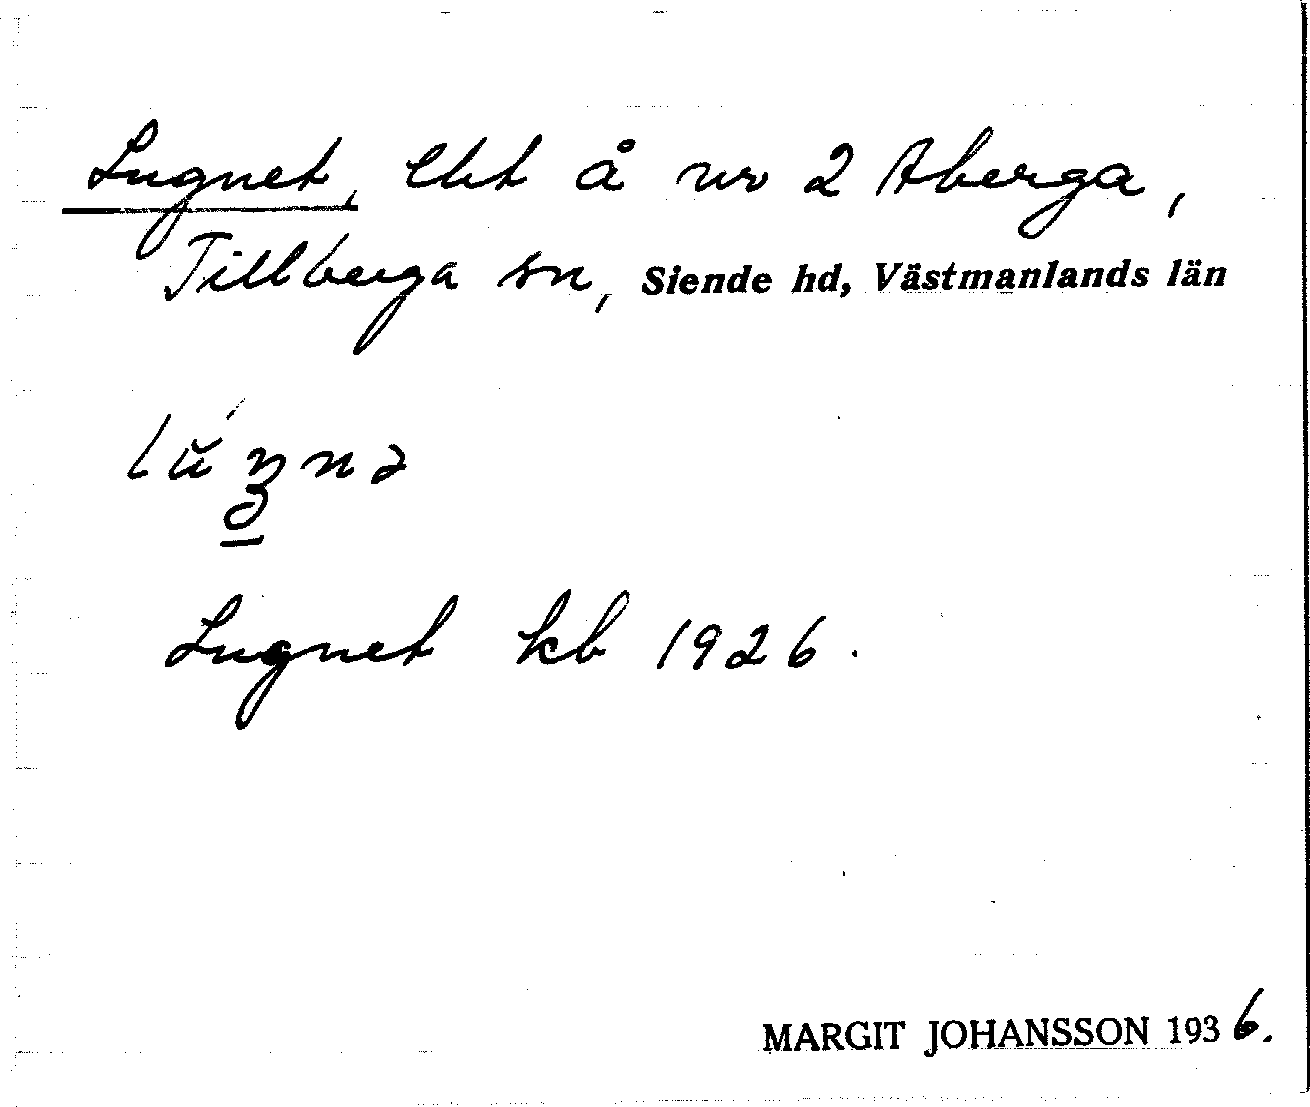 Lugnet, lht å nr 2 Aberga,
Tillberga sn, Siende hd, Västmanlands län
Lugnet kb 1926.
MARGIT JOHANSSON 1936.